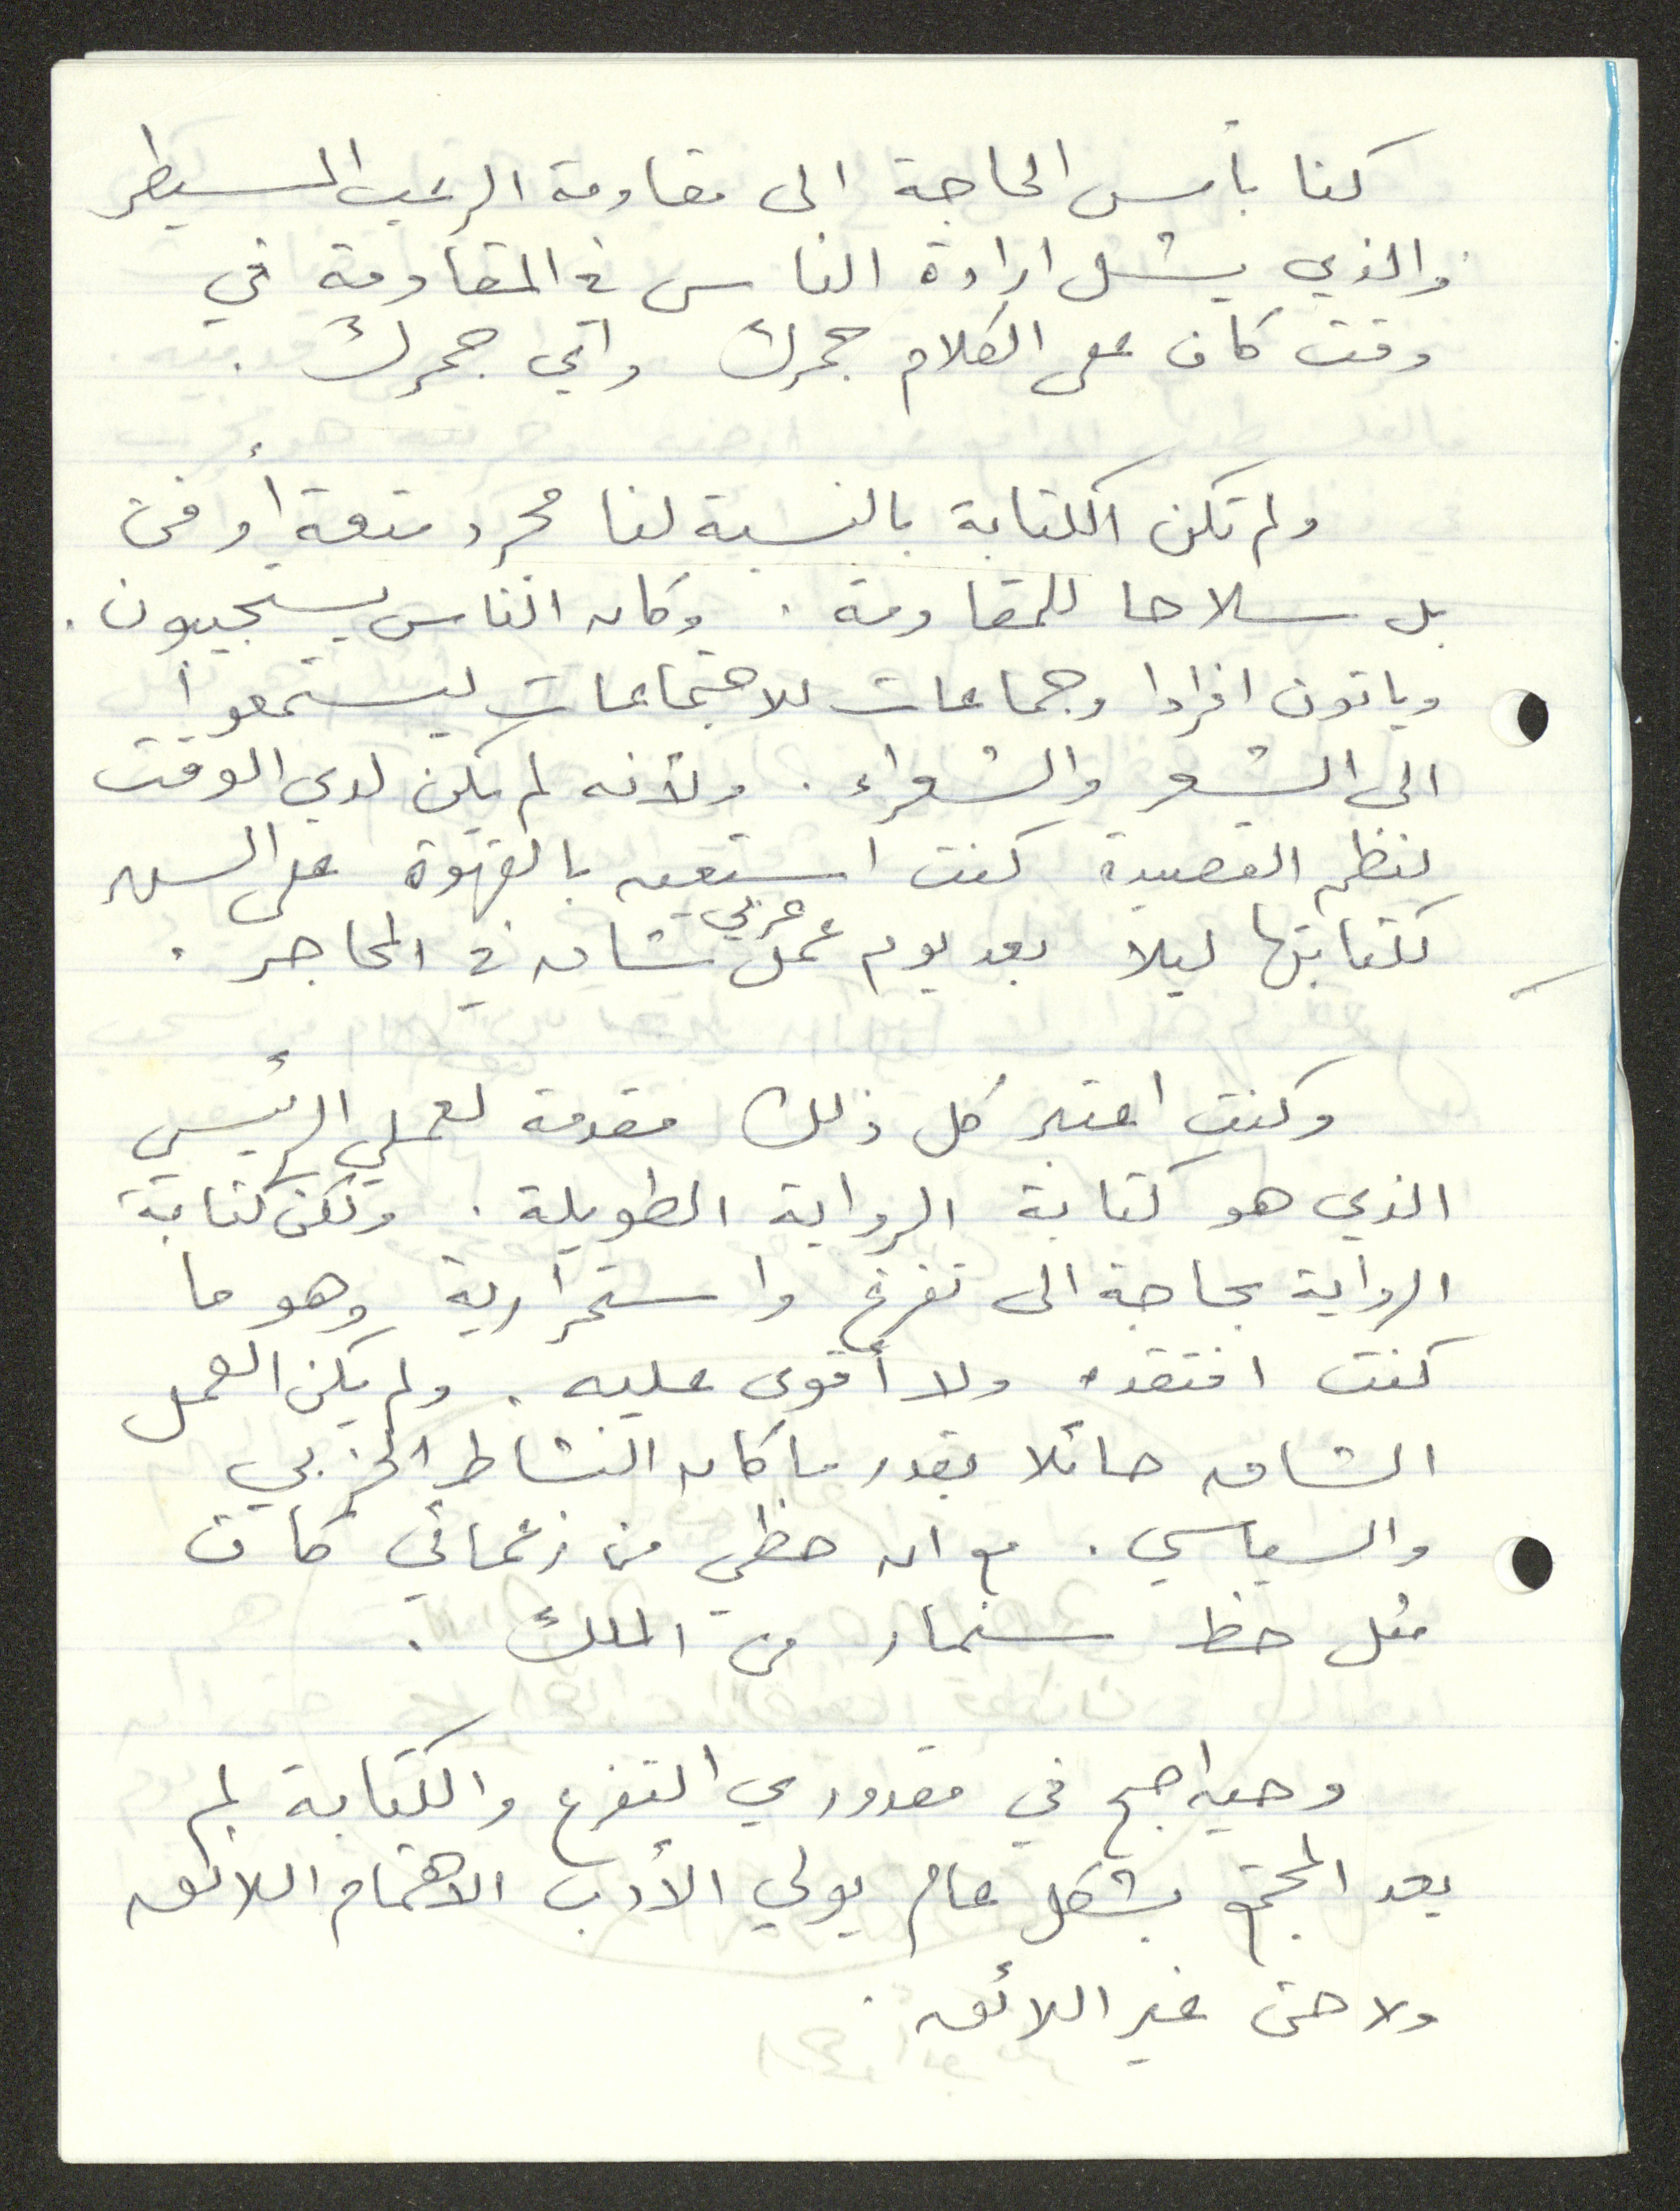 كنا بأمس الحاجة الى مقاومة الرعب المسيطر
والذي يشل ارادة الناس في المقاومة في
وقت كان على الكلام جمرك وأي جمرك .
ولم تكن الكتابة بالنسبة لنا مجرد متعة أو فن
بل سلاحا للمقاومة . وكان الناس يستجيبون .
وياتون افرادا وجماعات للاجتماعات ليستمعوا
الى الشعر والشعراء . ولأنه لم يكن لدي الوقت
لنظم القصيدة كنت استعين بالقهوة على السهر
لكتابتها ليلا بعد يوم عمل عربي شاق في المحاجر .
وكنت اعتبر كل ذلك مقدمة لعملي الرئيسي
الذي هو كتابة الرواية الطويلة . ولكن كتابة
الرواية بحاجة الى تفرغ واستمرارية وهو ما
كنت افتقده ولا أقوى عليه . ولم يكن العمل
الشاق حائلا بقدر ما كان النشاط الحزبي
والسياسي . مع ان حظي من زعمائي كان
مثل حظ سنمار من الملك .
وحين اصبح في مقدوري التفرغ والكتابة لم
يعد المجتمع بشكل عام يولي الأدب الاهتمام اللائق
ولا حتى غير اللائق .